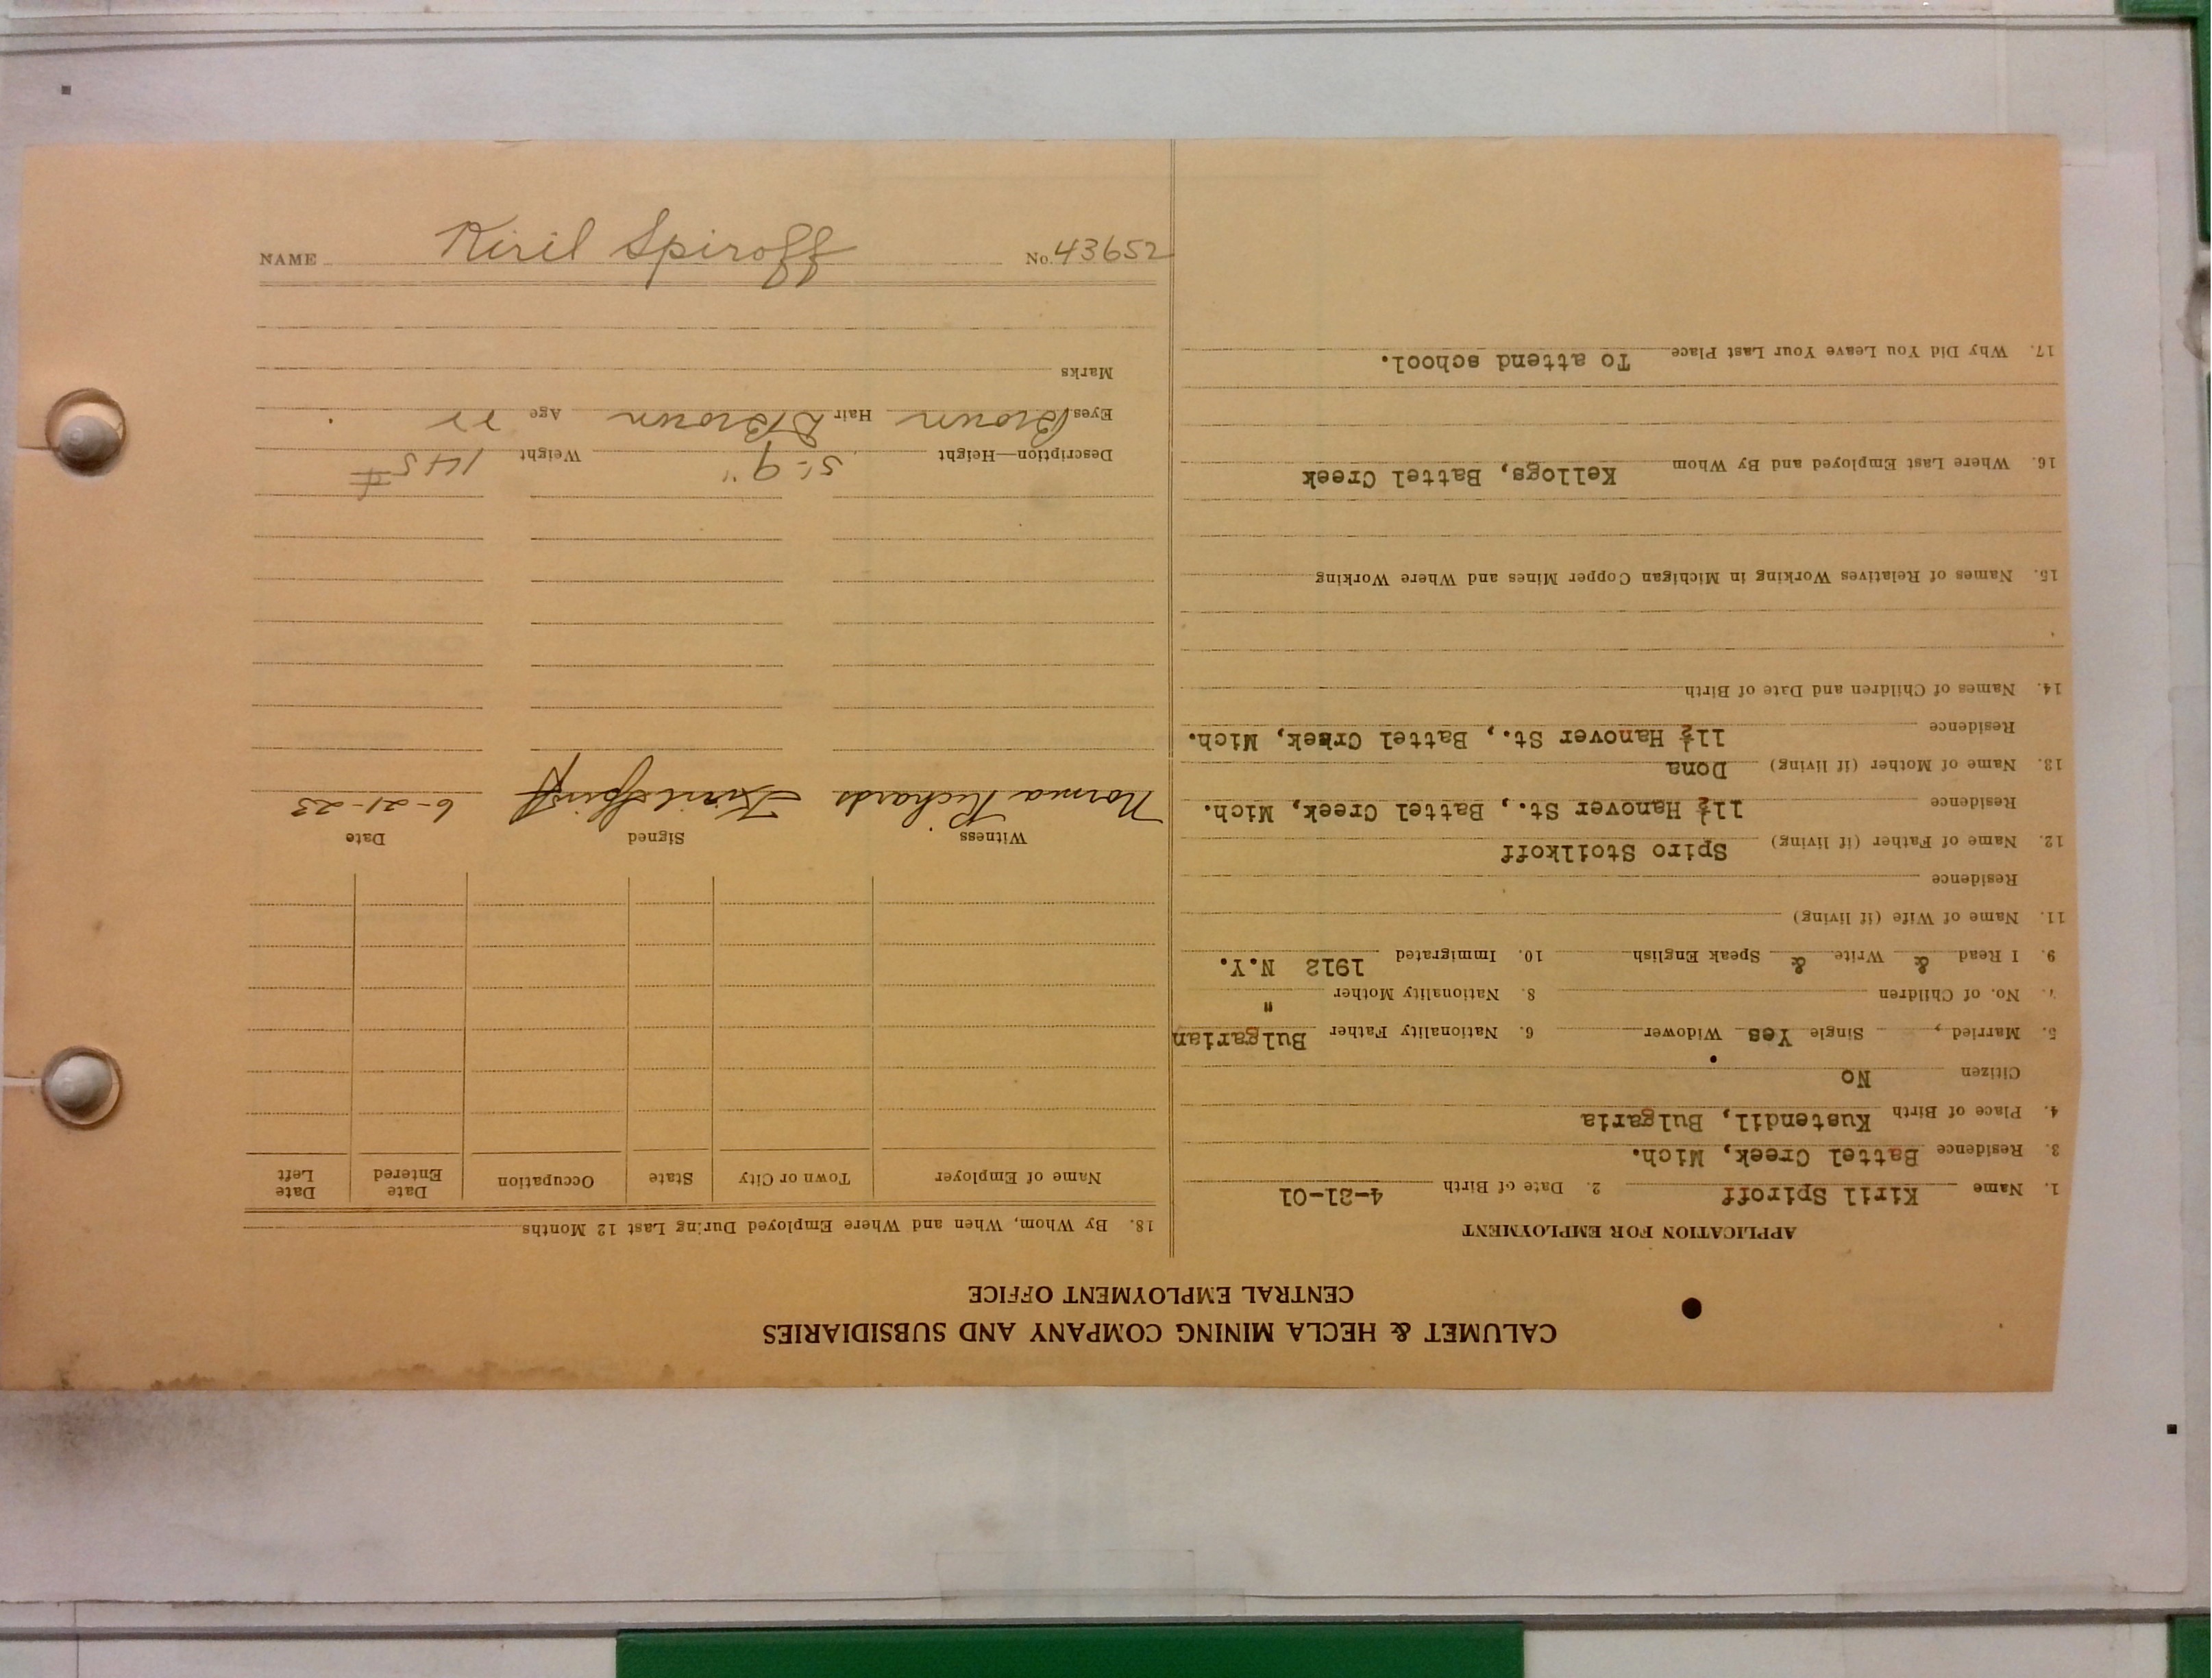 CALUMET & HECLA MINING COMPANY AND SUBSIDIARIES
CENTRAL EMPLOYMENT OFFICE
APPLICATION FOR EMPLOYMENT
1. Name Kiril Spiroff 2. Date of Birth 4-21-01
3. Residence Battel Creek, Mich.
4. Place of Birth Kustendil, Bulgaria
Citizen No
5. Married , Single Yes Widower 6. Nationality Father Bulgarian
7. No. of Children 8. Nationality Mother "
9. I Read & Write & Speak English 10. Immigrated 1912 N.Y.
11. Name of Wife (if living)
Residence
12. Name of Father (if living) Spiro Stoilkoff
Residence 11½ Hanover St., Battel Creek, Mich.
13. Name of Mother (if living) Dona
Residence 11½ Hanover St., Battel Creek, Mich.
14. Names of Children and Date of Birth
15. Names of Relatives Working in Michigan Copper Mines and Where Working
16. Where Last Employed and By Whom Kellogs, Battel Creek
17. Why Did You Leave Your Last Place To attend school.
18. By Whom, When and Where Employed During Last 12 Months
Name of Employer Town or City State Occupation Date Entered Date Left
Witness Signed Date
Norma Richards Kiril Spiroff 6-21-23
Description—Height 5'-9" Weight 145 #
Eyes Brown Hair D Brown Age 22
Marks
NAME Kiril Spiroff No. 43652